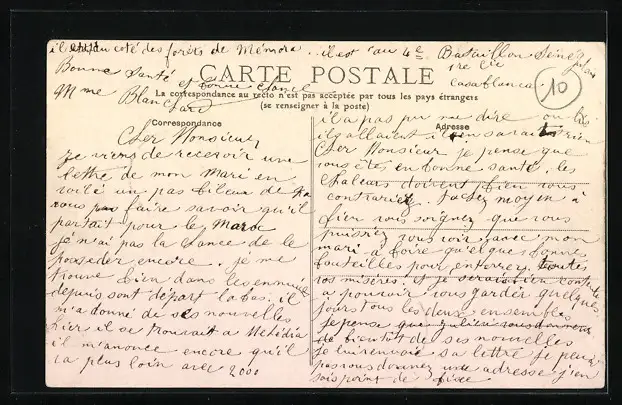 il est du coté des forêts de Mémora. il est au 4e Bataillon Sénégalais
1re Cie
Casablanca
Bonne santé et bonne chance
Mme Blanchard
10
CARTE POSTALE
La correspondance au recto n'est pas acceptée par tous les pays étrangers
(se renseigner à la poste)
Correspondance
Cher Monsieur
Je viens de recevoir une
lettre de mon Mari en
voilà un pas bileux de
vous faire savoir qu'il
partait pour le Maroc
je n'ai pas la chance de le
posseder encore. je me
trouve bien dans les ennuis
depuis sont depart labas. il
m'a donné de ses nouvelles
hier il se trouvait a Mehédia
il m'anonce encore qu'il
va plus loin avec 2000
Adresse
il a pas pu me dire ou
ils allaient il en savait rien
Cher Monsieur je pense que
vous êtes en bonne santé, les
chaleurs doivent bien vous
contrarier. tachez moyen à
bien vous soignez que vous
puissiez vous voir avec mon
mari a boire quelque bonnes
bouteilles pour enterrer toutes
vos misères. et je serais bien contente
a pouvoir vous garder quelques
jours tous les deux ensembles
Je pense que Julien vous donnera
de bientot de ses nouvelles
je lui renvoie sa lettre je peux
pas vous donnez une adresse j'en
sais point de fixe.